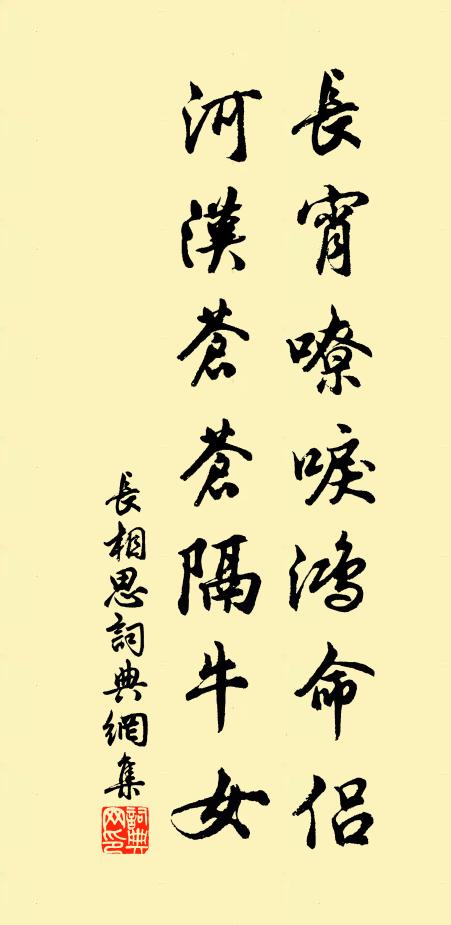 長宵嘹唳鴻命侶
河漢蒼蒼隔牛女
長相思詞典網集
詞典網印